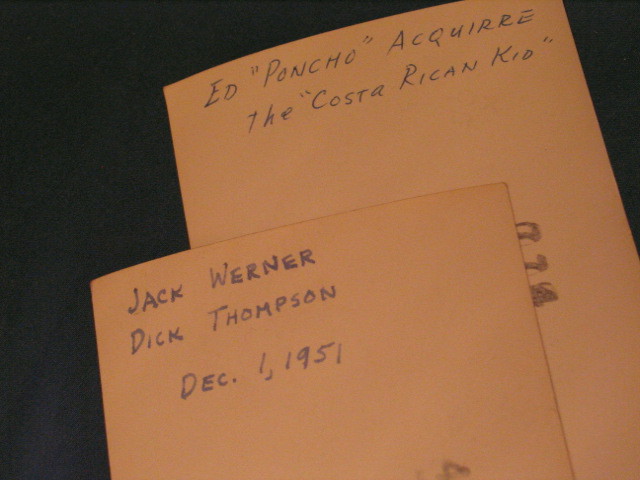 ED "PONCHO" ACQUIRRE
The "COSTA RICAN KID"
JACK WERNER
DICK THOMPSON
DEC. 1, 1951